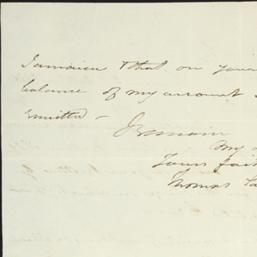 Jamaica & that on your
balance of my account
remitted –
I remain
My
Yours faith
Thomas